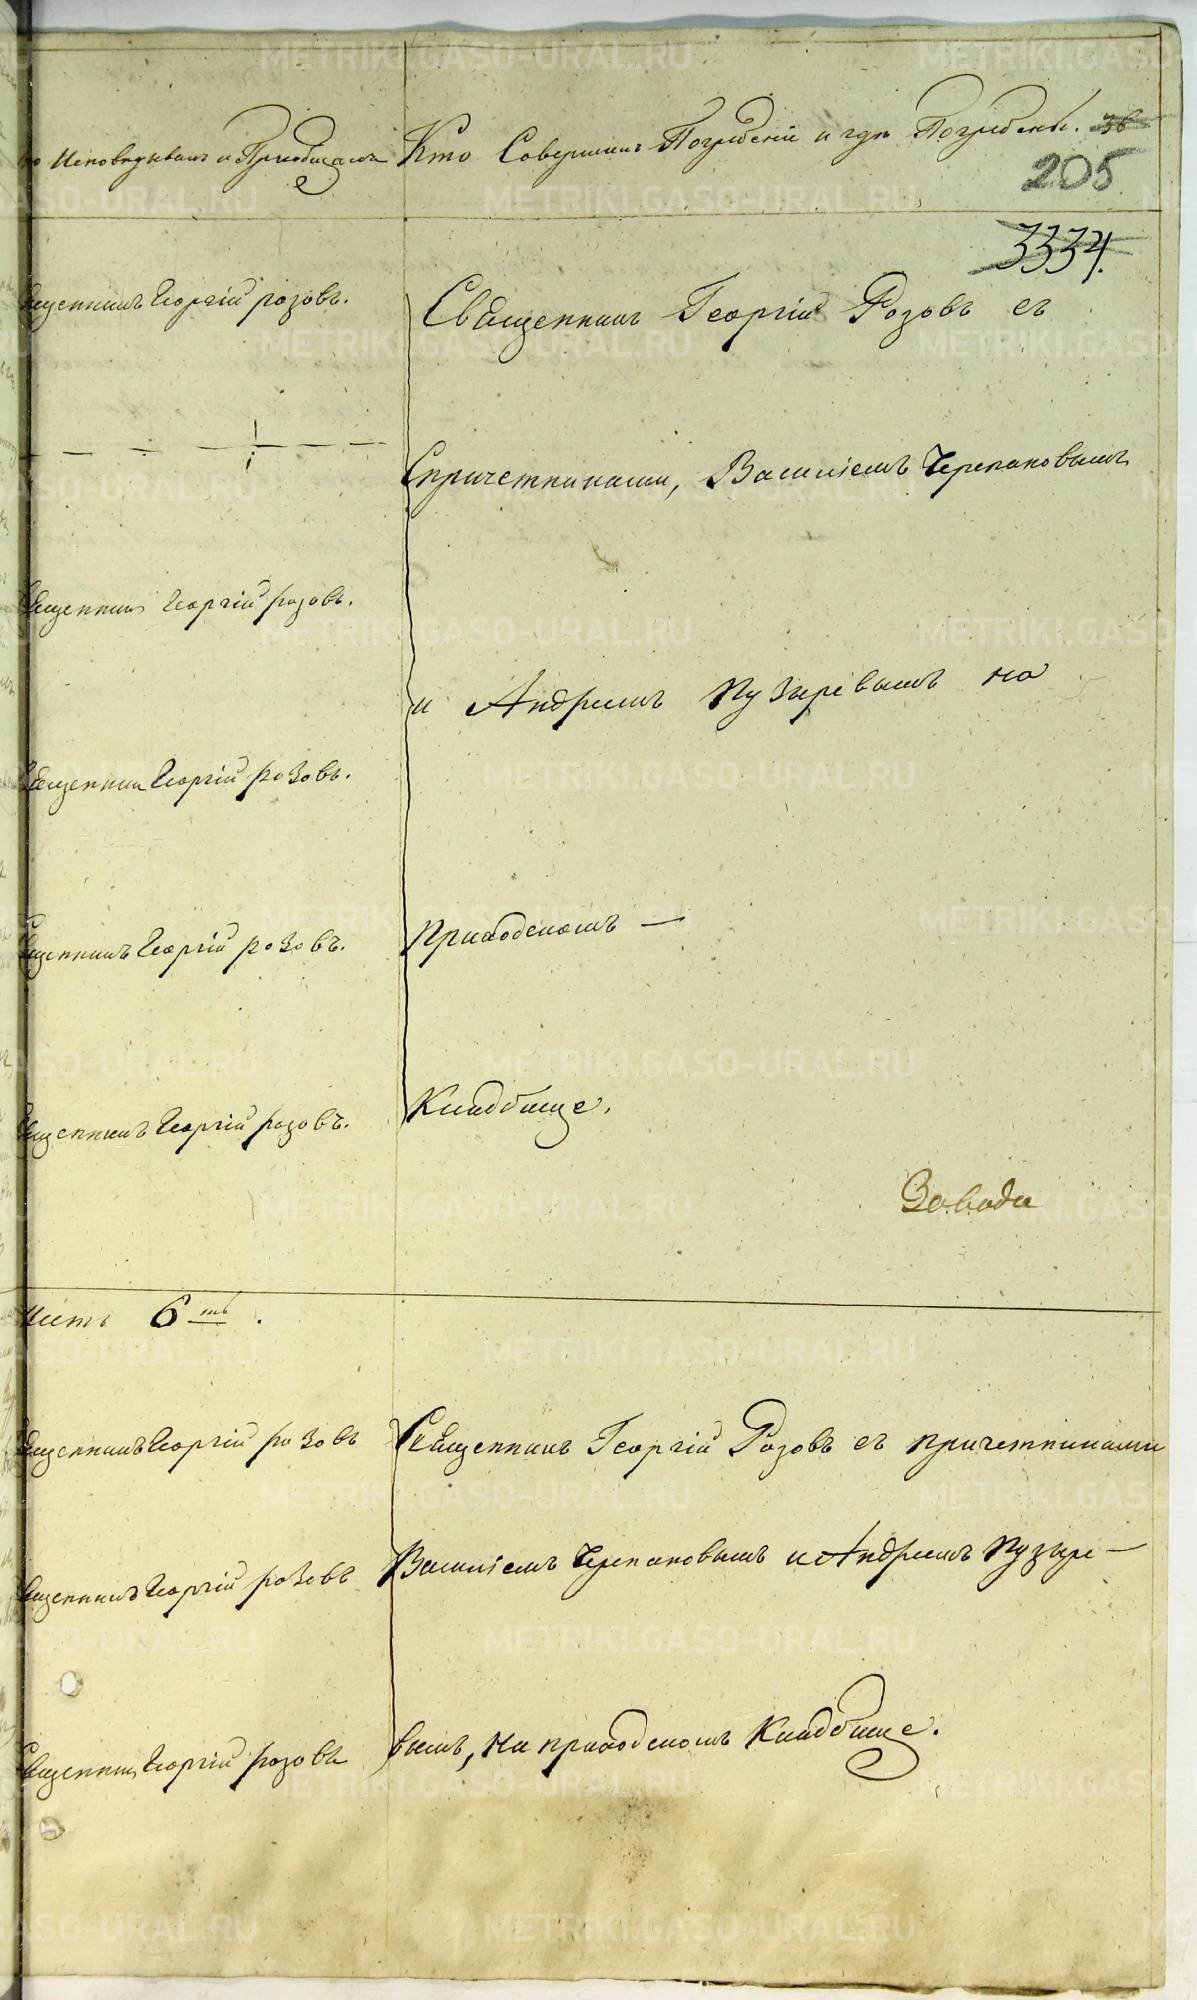 Исповѣдывалъ и Пріобщалъ
Кто Совершалъ Погребеніе и гдѣ Погребены.
205
3334.
Священникъ Георгій розовъ.
Священникъ Георгій Розовъ съ
Спричетниками, Василіемъ Черепановымъ
Священникъ Георгій розовъ.
и Андреемъ Пузыревымъ на
Священник Георгій розовъ.
Священникъ Георгій розовъ.
Приходскомъ —
Священникъ Георгій розовъ.
Кладбище.
Завода
6 ть .
Священникъ Георгій розовъ
Священникъ Георгій Розовъ съ причетниками
Священникъ Георгій розовъ
Василіемъ Черепановымъ и Андреемъ Пузыре —
Священникъ Георгій розовъ
вымъ, на приходскомъ Кладбище.
METRIKI.GASO-URAL.RU